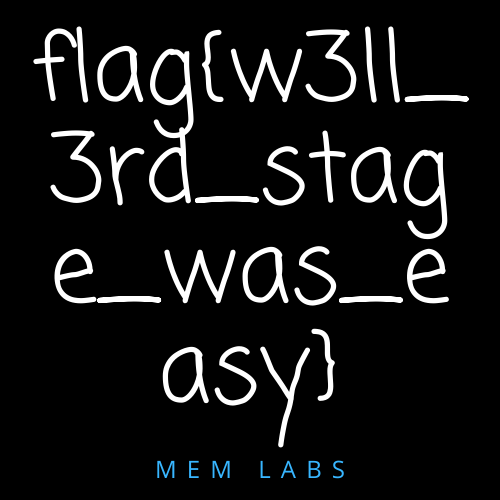 flag{w3ll_
3rd_stag
e_was_e
asy}
MEM LABS